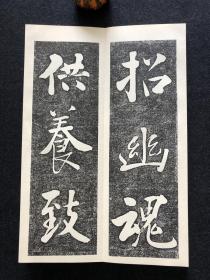 招幽魂
供養致